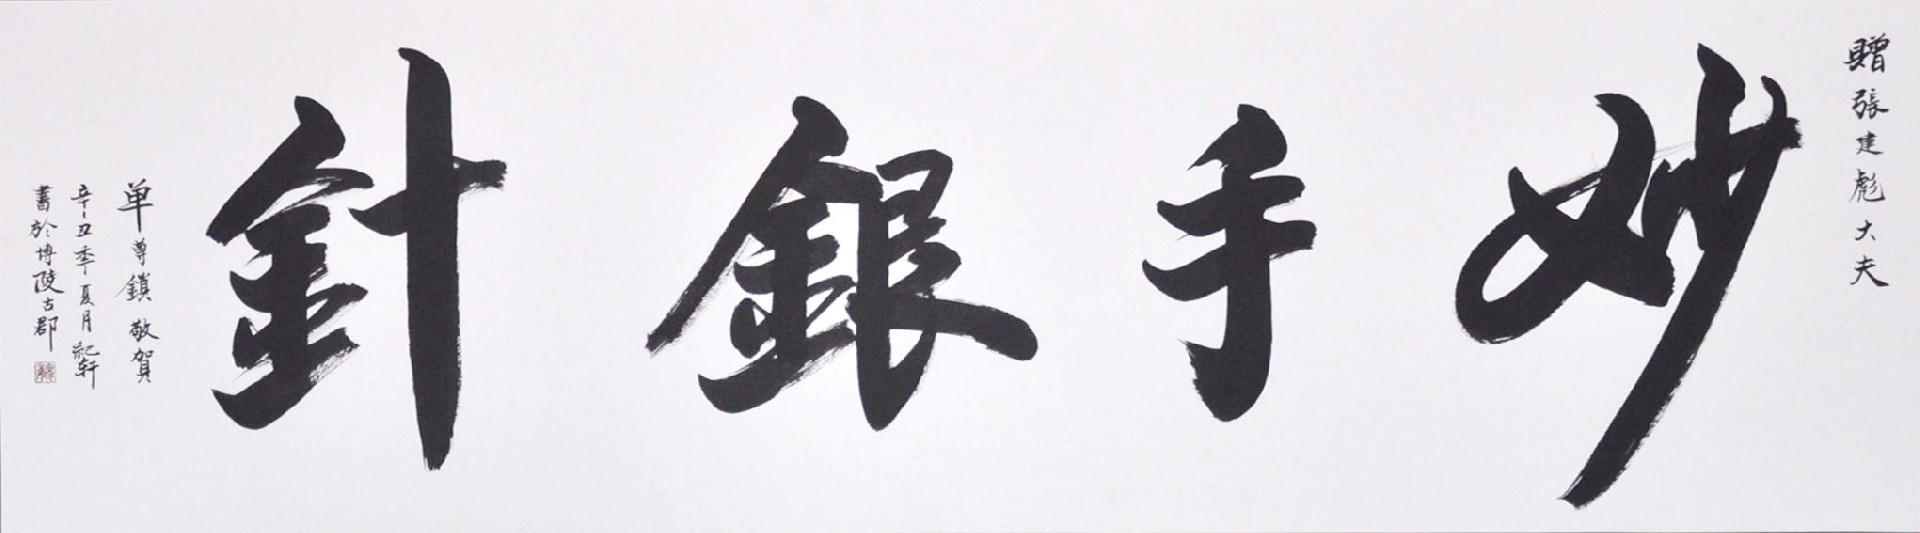 贈張建彪大夫
妙手銀針
单尊鎖敬賀
辛丑季夏月紀軒
書於博陵古郡